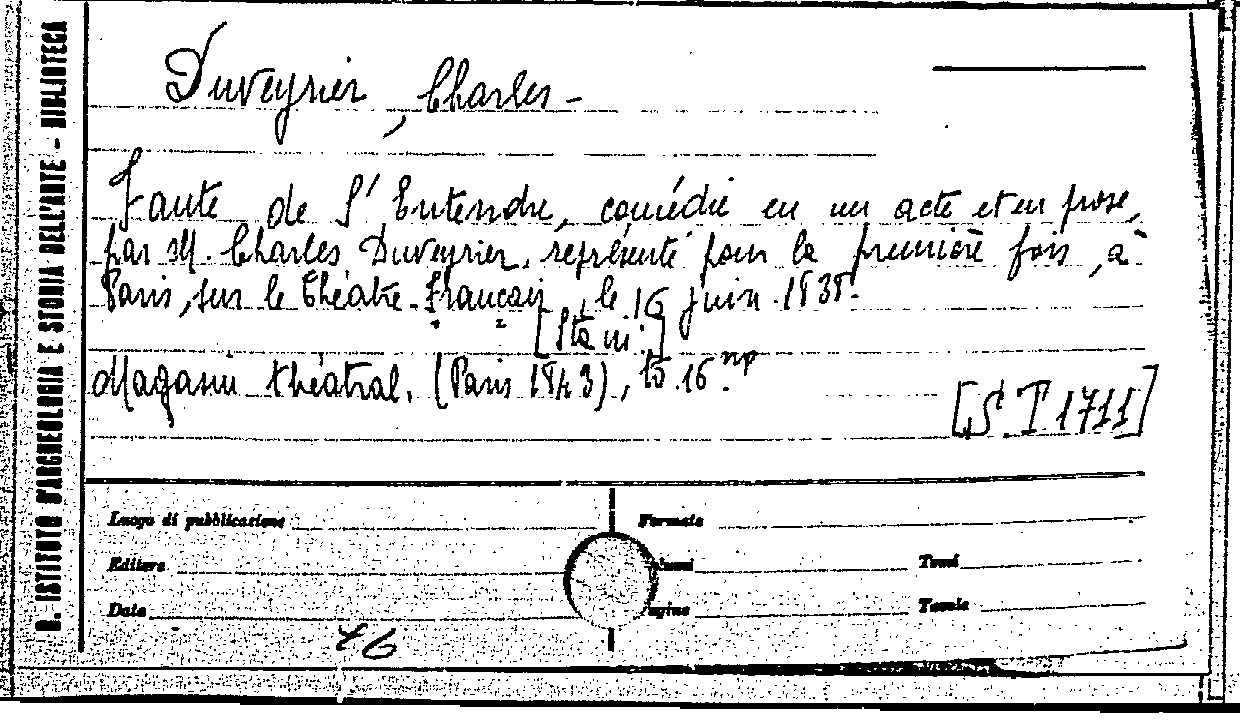 R. ISTITUTO D'ARCHEOLOGIA E STORIA DELL'ARTE - BIBLIOTECA
Duveyrier, Charles -
Faute de S'Entendre, comédie en un acte et en prose,
par M. Charles Duveyrier, représenté pour la première fois, à
Paris, sur le Théatre-Français, le 16 juin 1838.
Magasin théatral. (Paris 1843), to. 16.
[S. T 1711]
Luogo di pubblicazione
Formato
Editore
Tomi
Data
Tavole
46